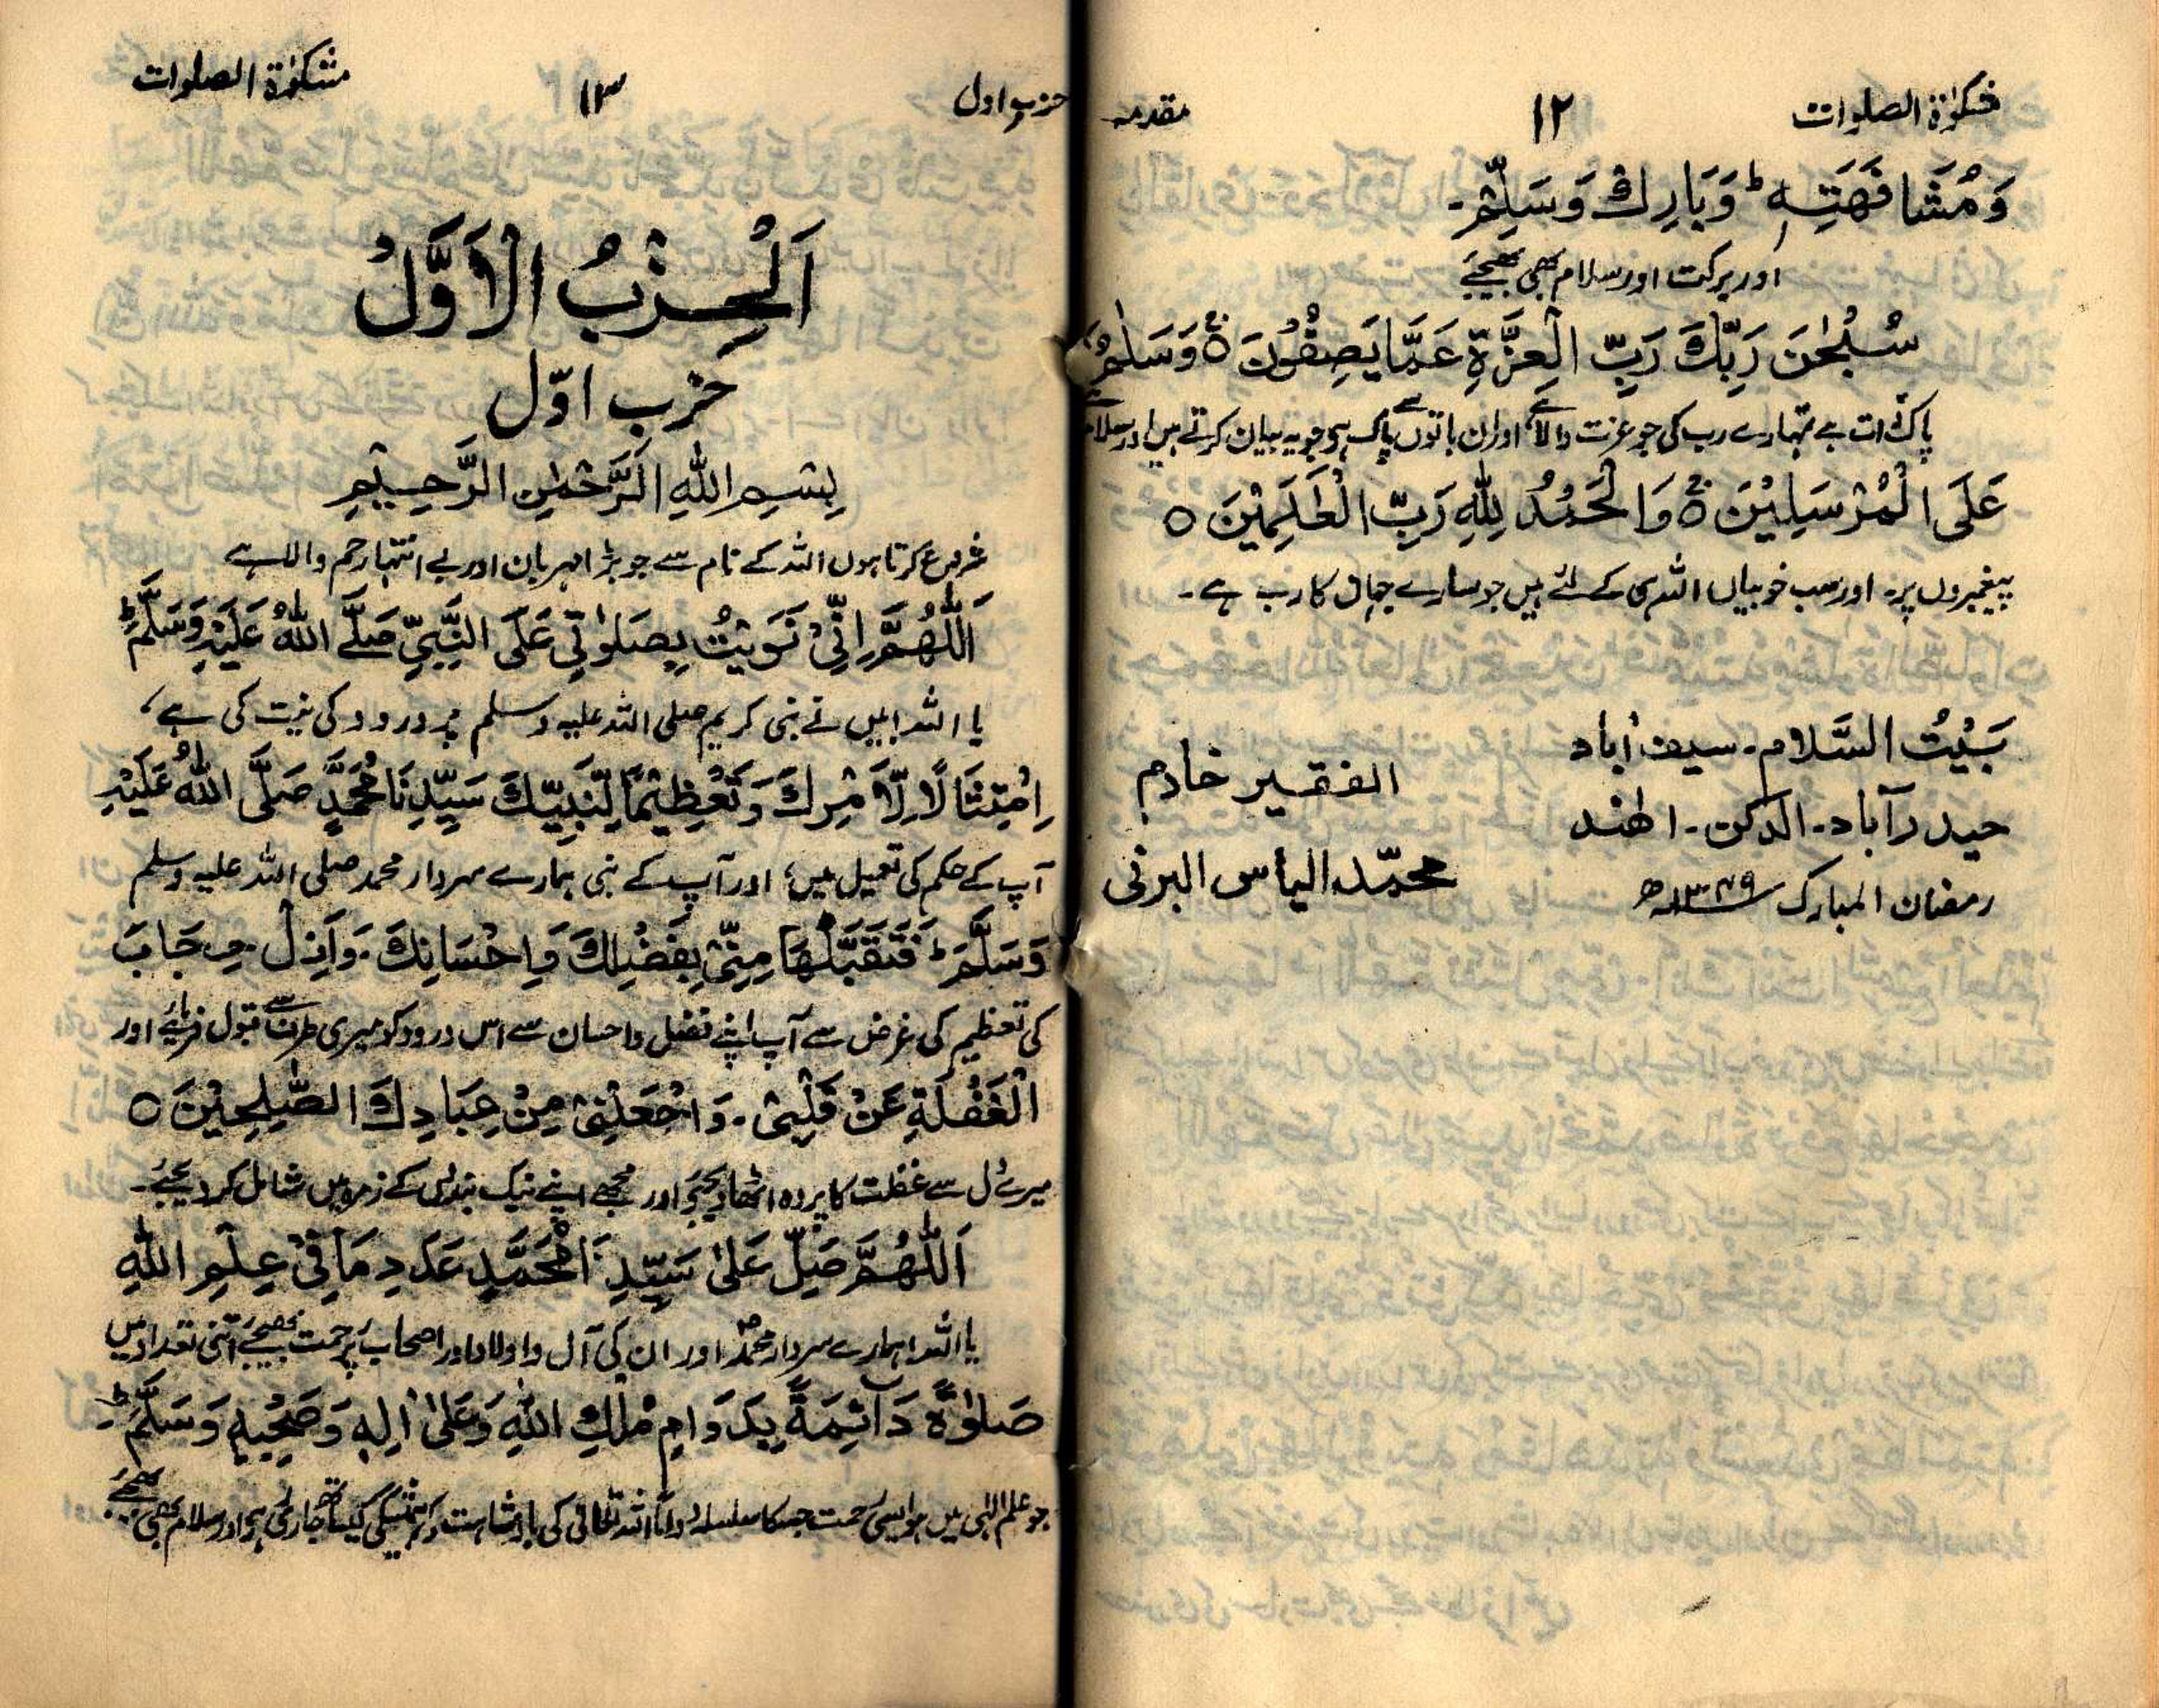 مشکوٰة الصلوات ۱۲ مقدمہ
وَمُشَافَهَتِهٖ ؕ وَبَارِكْ وَسَلِّمْ۔
اور برکت اور سلام بھی بھیجئے
سُبْحٰنَ رَبِّكَ رَبِّ الْعِزَّةِ عَمَّا يَصِفُوْنَ ۚ وَسَلٰمٌ
پاک ذات ہے تمہارے رب کی جو عزت والا ہے اور ان باتوں سے پاک ہے جو یہ بیان کرتے ہیں اور سلام
عَلَى الْمُرْسَلِيْنَ ۚ وَالْحَمْدُ لِلّٰهِ رَبِّ الْعٰلَمِيْنَ ○
پیغمبروں پر۔ اور سب خوبیاں اللہ ہی کے لئے ہیں جو سارے جہاں کا رب ہے۔
بَيْتُ السَّلام۔ سیف آباد
حیدرآباد۔ الدکن۔ الهند
رمضان المبارک ۱۳۴۹ھ
الفقیر خادم
محمّد الیاس البرنی
مشکوٰة الصلوات ۱۳ حزب اول
اَلْحِزْبُ الْاَوَّلُ
حزب اوّل
بِسْمِ اللّٰهِ الرَّحْمٰنِ الرَّحِيْمِ
شروع کرتا ہوں اللہ کے نام سے جو بڑا مہربان اور بے انتہا رحم والا ہے
اَللّٰهُمَّ اِنِّيْ نَوَيْتُ بِصَلٰوتِيْ عَلَى النَّبِيِّ صَلَّے اللّٰهُ عَلَيْهِ وَسَلَّمَ ؕ
یا اللہ! میں نے نبی کریم صلی اللہ علیہ وسلم پر درود کی نیت کی ہے،
اِمْتِثَالًا لِّاَمْرِكَ وَتَعْظِيْمًا لِّنَبِيِّكَ سَيِّدِنَا مُحَمَّدٍ صَلَّى اللّٰهُ عَلَيْهِ
آپ کے حکم کی تعمیل میں، اور آپ کے نبی ہمارے سردار محمد صلی اللہ علیہ وسلم
وَسَلَّمَ ؕ فَتَقَبَّلْهَا مِنِّيْ بِفَضْلِكَ وَاِحْسَانِكَ۔ وَاَزِلْ حِجَابَ
کی تعظیم کی غرض سے آپ اپنے فضل و احسان سے اس درود کو میری طرف سے قبول فرمائیے اور
الْغَفْلَةِ عَنْ قَلْبِيْ۔ وَاجْعَلْنِيْ مِنْ عِبَادِكَ الصّٰلِحِيْنَ ○
میرے دل سے غفلت کا پردہ اٹھا دیجئے اور مجھے اپنے نیک بندوں کے زمرہ میں شامل کر دیجئے۔
اَللّٰهُمَّ صَلِّ عَلٰى سَيِّدِنَا مُحَمَّدٍ عَدَدِ مَا فِيْ عِلْمِ اللّٰهِ
یا اللہ! ہمارے سردار محمدؐ اور ان کی آل و اولاد اور اصحاب پر رحمت بھیجئے اتنی تعداد میں
صَلٰوةً دَآئِمَةً بِدَوَامِ مُلْكِ اللّٰهِ وَعَلٰى اٰلِهٖ وَصَحْبِهٖ وَسَلَّمَ ؕ
جو علم الٰہی میں ہو ایسی رحمت جس کا سلسلہ دواماً اللہ تعالیٰ کی بادشاہت کی ہمیشگی کیساتھ جاری ہو اور سلام بھی بھیجئے